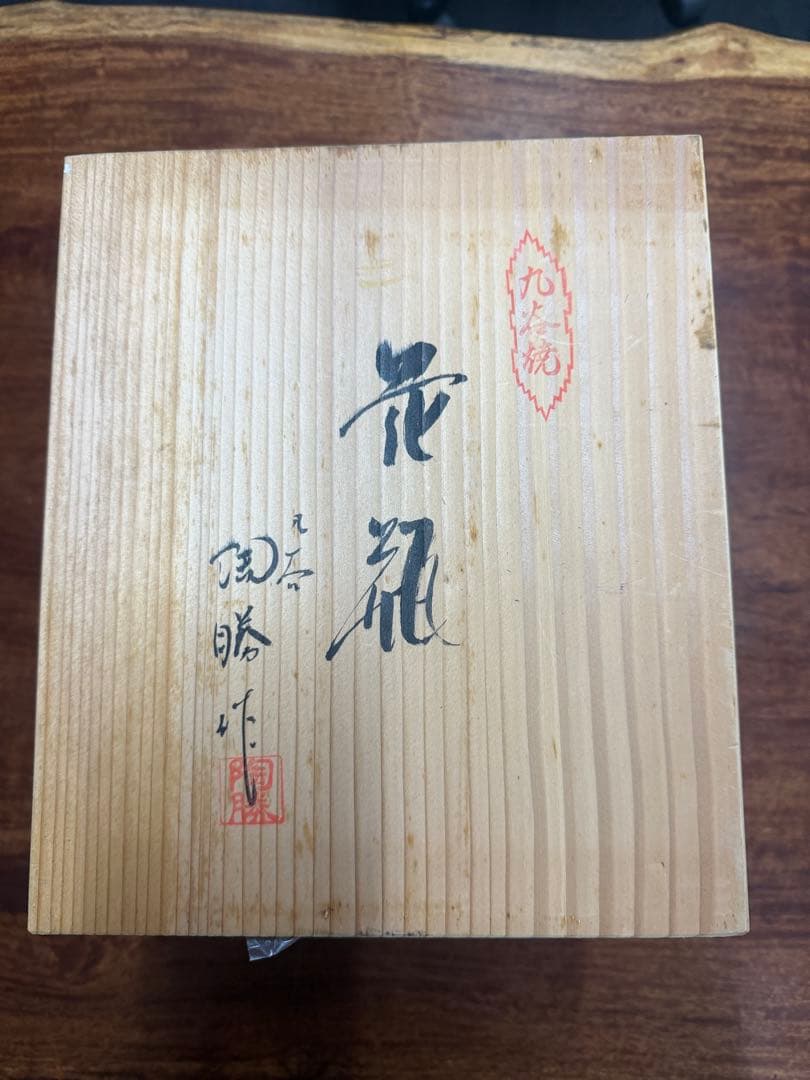 九谷焼
花瓶
九谷
陶勝作
陶勝